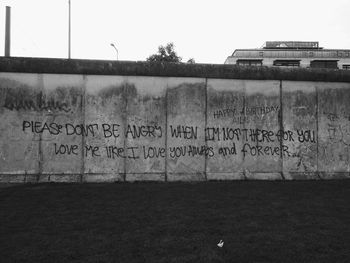 HAPPY BIRTHDAY
PlEASE DONT BE ANGRY WHEN IM NOT HERE FOR YOU
LOVE ME lIKE I LOVE YOU AlWAYS and foREVER...